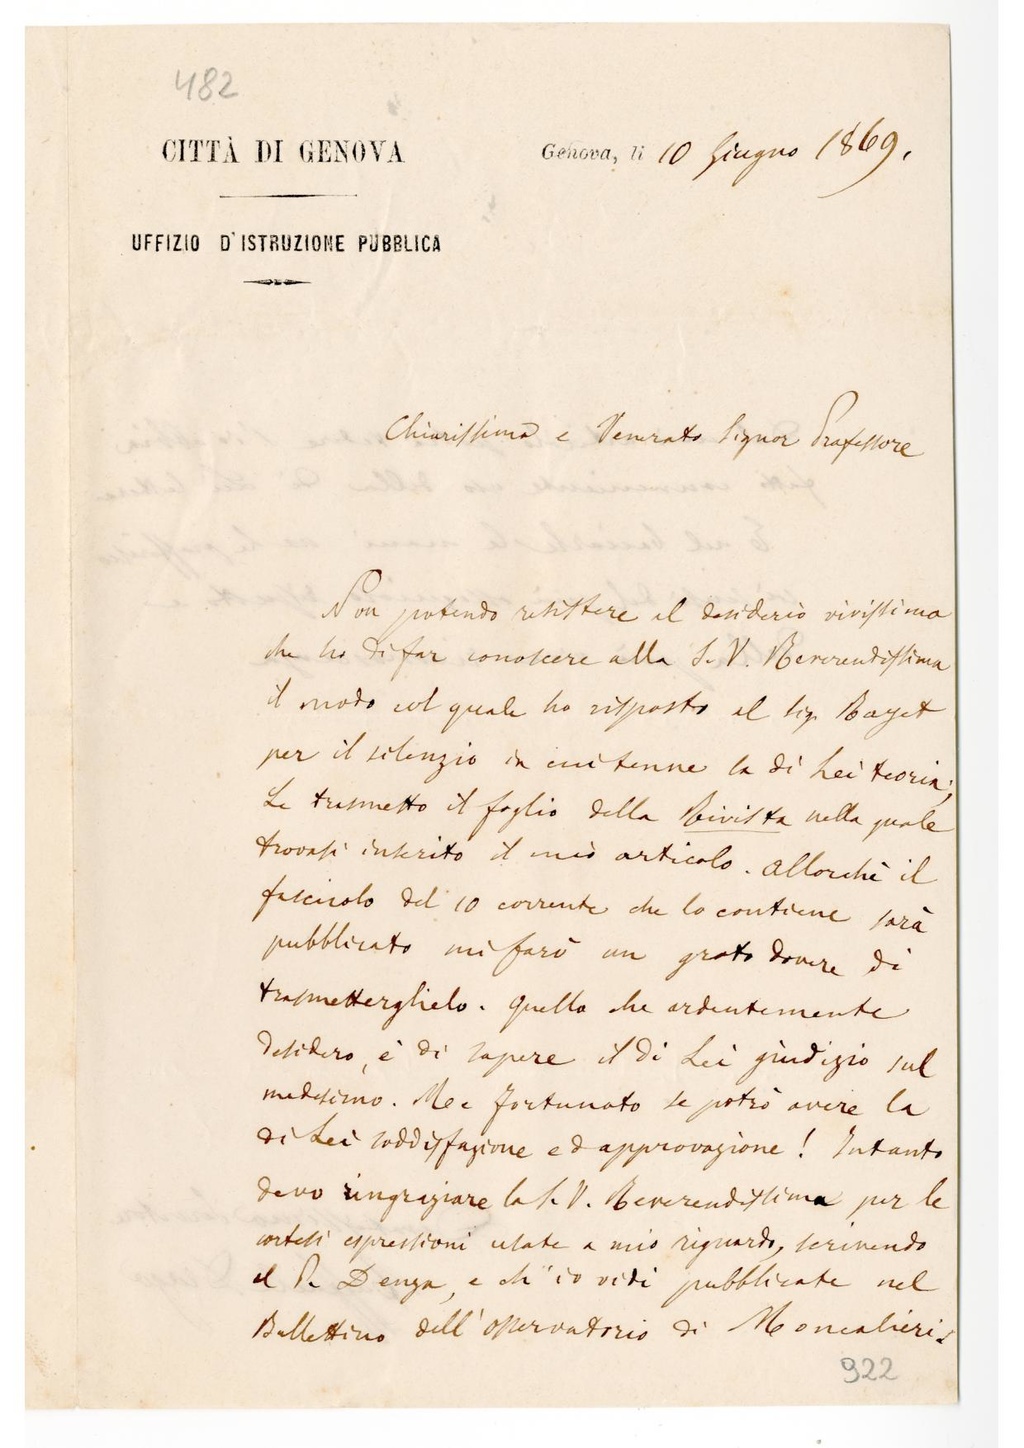 482
CITTÀ DI GENOVA
Genova, li 10 Giugno 1869.
UFFIZIO D'ISTRUZIONE PUBBLICA
Chiarissimo e Venerato Signor Professore
Non potendo resistere al desiderio vivissimo
che ho di far conoscere alla S. V. Reverendissima
il modo col quale ho risposto al Sig. Bayet
per il silenzio in cui tenne la di Lei teoria;
Le trasmetto il foglio della Rivista nella quale
trovasi inserito il mio articolo. Allorchè il
fascicolo del 10 corrente che lo contiene sarà
pubblicato mi farò un grato dovere di
trasmetterglielo. Quello che ardentemente
desidero, è di sapere il di Lei giudizio sul
medesimo. Me fortunato se potrò avere la
di Lei soddisfazione ed approvazione! Intanto
devo ringraziare la S. V. Reverendissima per le
cortesi espressioni usate a mio riguardo, scrivendo
al P. Denza, e ch'io vidi pubblicate nel
Bullettino dell'Osservatorio di Moncalieri.
922